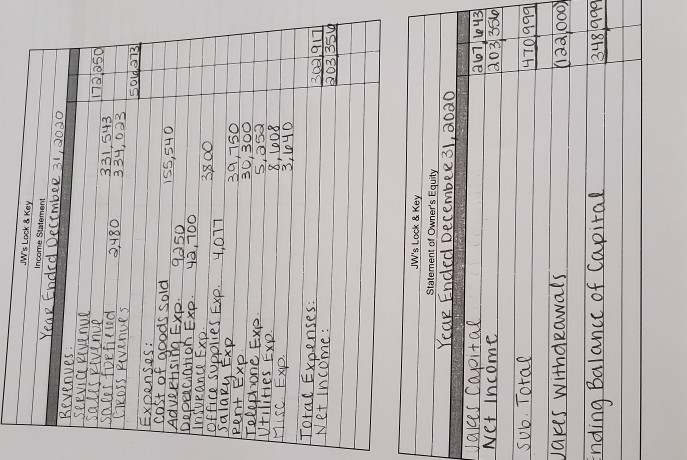 JW's Lock & Key
Income Statement
Year Ended December 31, 2020
Revenues:
Service Revenue 172250
Sales Revenue 331,543
Sales 2,480 334,023
Gross Revenues 506273
Expenses:
Cost of goods sold 155,540
Advertising Exp. 9250
Depreciation Exp. 42,700
Insurance Exp. 3800
Office Supplies Exp. 4,077
Salary Exp 39,750
Rent Exp. 30,300
Telephone Exp 5,252
Utilities Exp. 8,608
Misc. Exp. 3,640
Total Expenses: 302917
Net Income: 203356
JW's Lock & Key
Statement of Owner's Equity
Year Ended December 31, 2020
Jakes Capital 267,643
Net Income 203,356
Sub. Total 470,999
Jakes Withdrawals (122,000)
Ending Balance of Capital 348,999